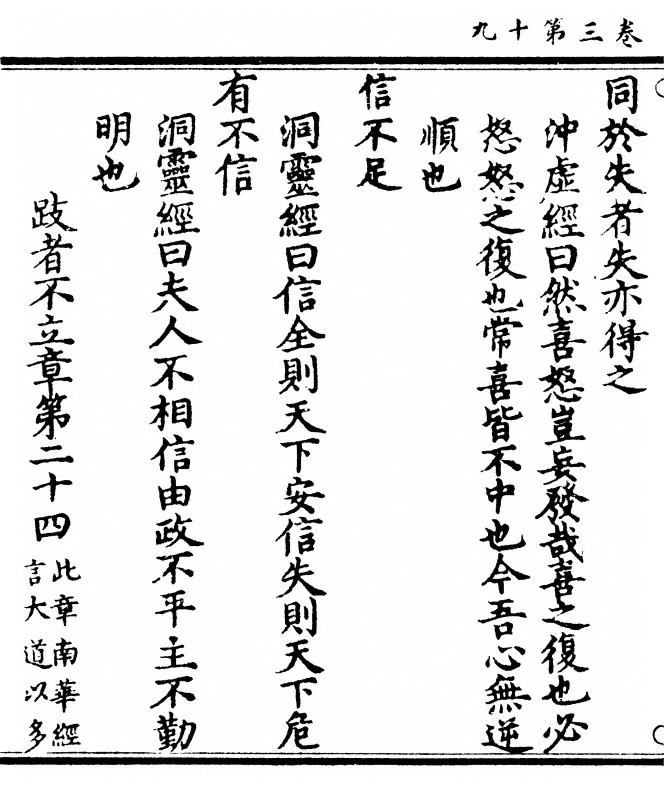 卷三第十九
同於失者失亦得之
沖虛經曰然喜怒豈妄發哉喜之復也必
怒怒之復也常喜皆不中也今吾心無逆
順也
信不足
洞靈經曰信全則天下安信失則天下危
有不信
洞靈經曰夫人不相信由政不平主不勤
明也
跂者不立章第二十四
此章南華經
言大道以多